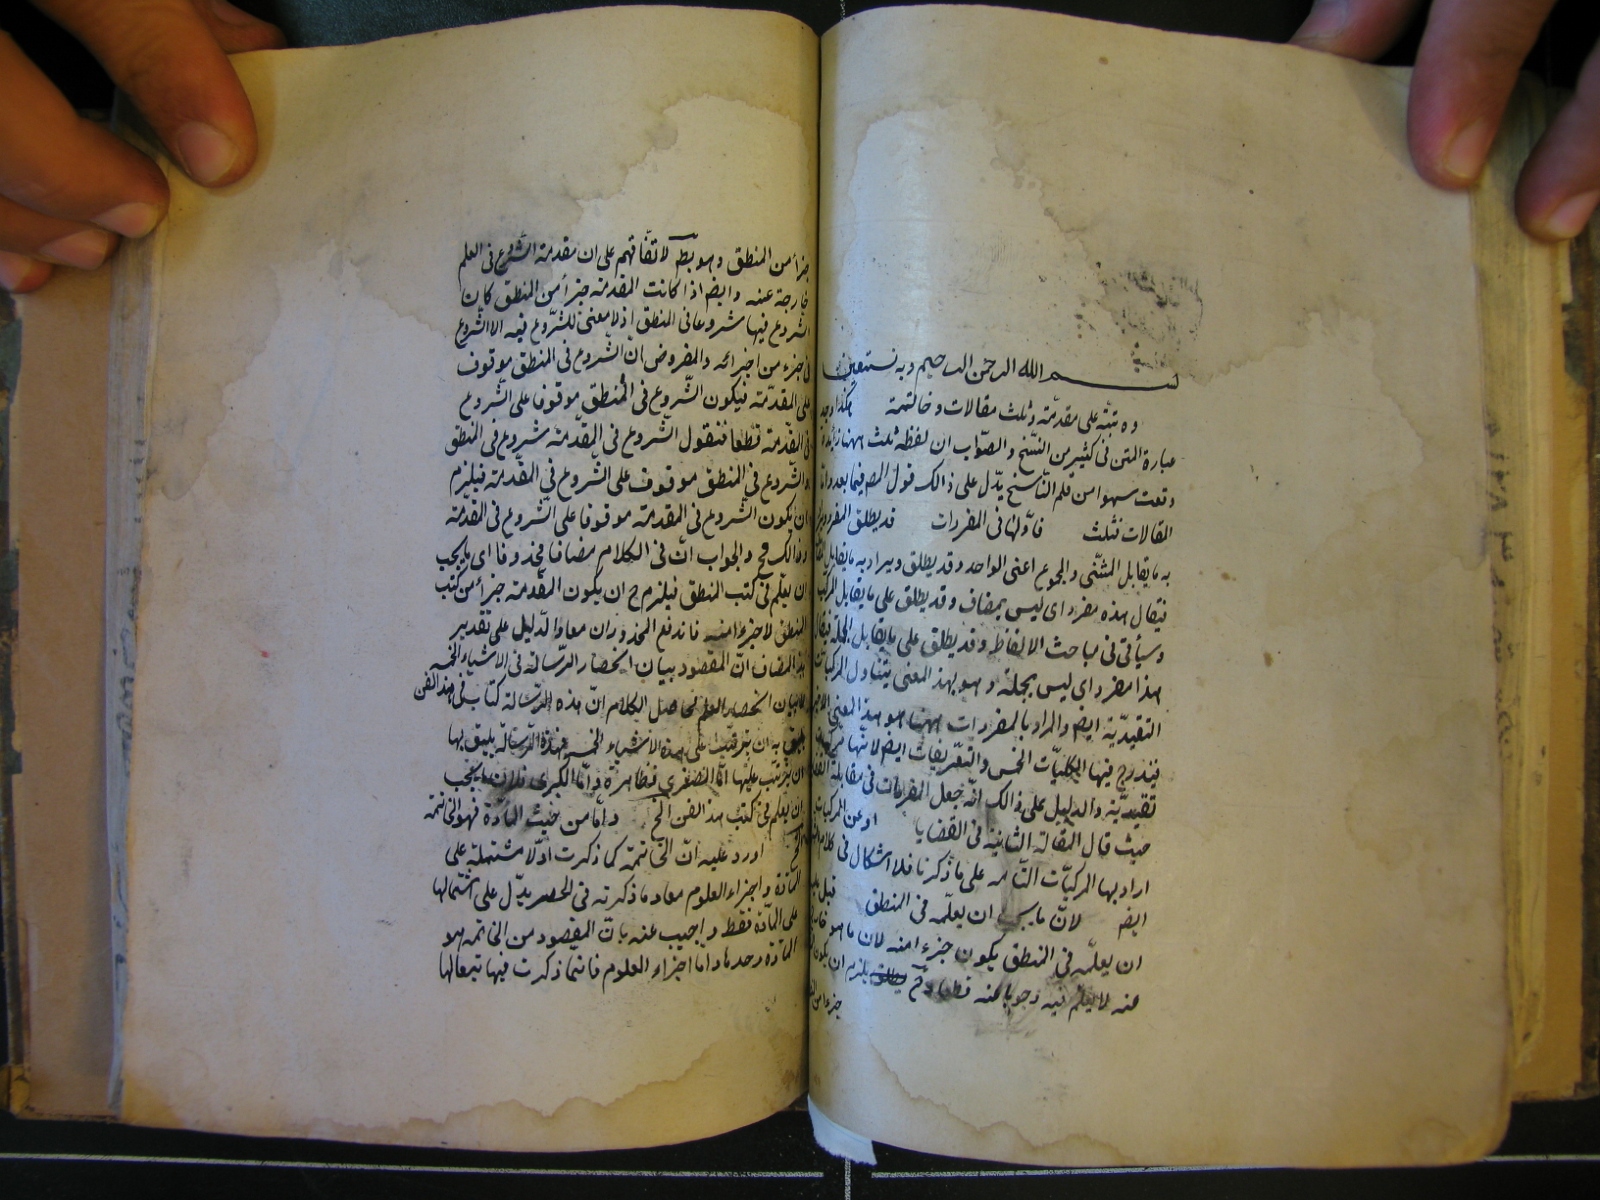 بسم الله الرحمن الرحيم وبه نستعين
ورتبته على مقدمة وثلث مقالات وخاتمة هكذا وجد
عبارة المتن في كثير من النسخ والصواب ان لفظة ثلث ههنا زايدة
وقعت سهوا من قلم الناسخ يدل على ذالك قول المصـ فيما بعد واما
المقالات فثلث فاولها في المفردات قد يطلق المفرد ويراد
به ما يقابل المثنى والمجموع اعنى الواحد وقد يطلق ويراد به ما يقابل المضاف
فيقال هذه مفرد اى ليس بمضاف وقد يطلق على ما يقابل المركب
وسيأتى في مباحث الالفاظ وقد يطلق على ما يقابل الجملة فيقال
هذا مفرد اى ليس بجملة وهو بهذا المعنى يتناول المركبات
التقيديّة ايضـ والمراد بالمفردات ههنا هو هذا المعنى الاخير
فيندرج فيها الكليّات الخمس والتعريفات ايضـ لانها مركبات
تقيديّة والدليل على ذالك انه جعل المفردات في مقابلة القضايا
حيث قال المقالة الثانية في القضايا او عن المركبات
اراد بها المركبات التامه على ما ذكرنا فلا اشكال في كلامه
ايضـ لانّ ما يجب ان يعلّم في المنطق قيل
ان يعلّم في المنطق يكون جزءا منه لان ما هو خارج
عنه لا يعلم فيه وجوبا عنه قطعا وحـ يلزم ان يكون
جزءا من المنطق وهو بط لاتفاقهم على ان مقدمة الشروع في العلم
خارجة عنه وايضـ اذا كانت المقدمة جزأ من المنطق كان
الشروع فيها شروعا في المنطق اذ لا معنى للشروع فيه الا الشروع
في جزء من اجزائه والمفروض ان الشروع في المنطق موقوف
على المقدّمة فيكون الشروع في المنطق موقوفا على الشروع
في المقدّمة قطعا فنقول الشروع في المقدّمة شروع في المنطق
والشروع في المنطق موقوف على الشروع في المقدّمة فيلزم
ان يكون الشروع في المقدمة موقوفا على الشروع في المقدمة
وذالك مح والجواب انّ في الكلام مضافا محذوفا اى ما يجب
ان يعلّم في كتب المنطق فيلزم ح ان يكون المقدّمة جزأ من كتب
المنطق لا جزءا منه فاندفع المحذوران معا والدليل على تقدير
هذا المضاف انّ المقصود بيان انحصار الرّسالة في الاشياء الخمسة
لا بيان انحصار العلم فحاصل الكلام انّ هذه الرّسالة كتاب في هذا الفن
يليق به ان يترتب على هذه الاشياء الخمسة فهذه الرسالة يليق بها
ان يترتب عليها امّا الصغرى فظاهرة وامّا الكبرى فلان ما يجب
ان يعلم في كتب هذا الفن الخ وامّا من حيث المادّة فهو الخاتمة
الخ اورد عليه انّ الخاتمة كما ذكرت اوّلا مشتملة على
المادّة واجزاء العلوم معا وما ذكرته في الحصر يدّل على اشتمالها
على المادّة فقط واجيب عنه بانّ المقصود من الخاتمه هو
المادّة وحدها واما اجزاء العلوم فانّما ذكرت فيها تبعا لها